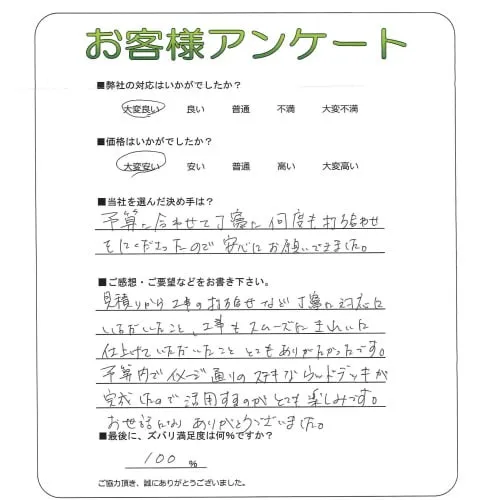 お客様アンケート
■弊社の対応はいかがでしたか？
大変良い 良い 普通 不満 大変不満
■価格はいかがでしたか？
大変安い 安い 普通 高い 大変高い
■当社を選んだ決め手は？
予算に合わせて丁寧に何度も打ち合わせ
をしてくださったので安心にお願いできました。
■ご感想・ご要望などをお書き下さい。
見積りから工事の打ち合せなど丁寧に対応に
いただいたこと、工事もスムーズにきれいに
仕上げていただいたこととてもありがたかったです。
予算内でイメージ通りのステキなウッドデッキが
完成したので活用するのがとても楽しみです。
お世話になりありがとうございました。
■最後に、ズバリ満足度は何％ですか？
100 ％
ご協力頂き、誠にありがとうございました。